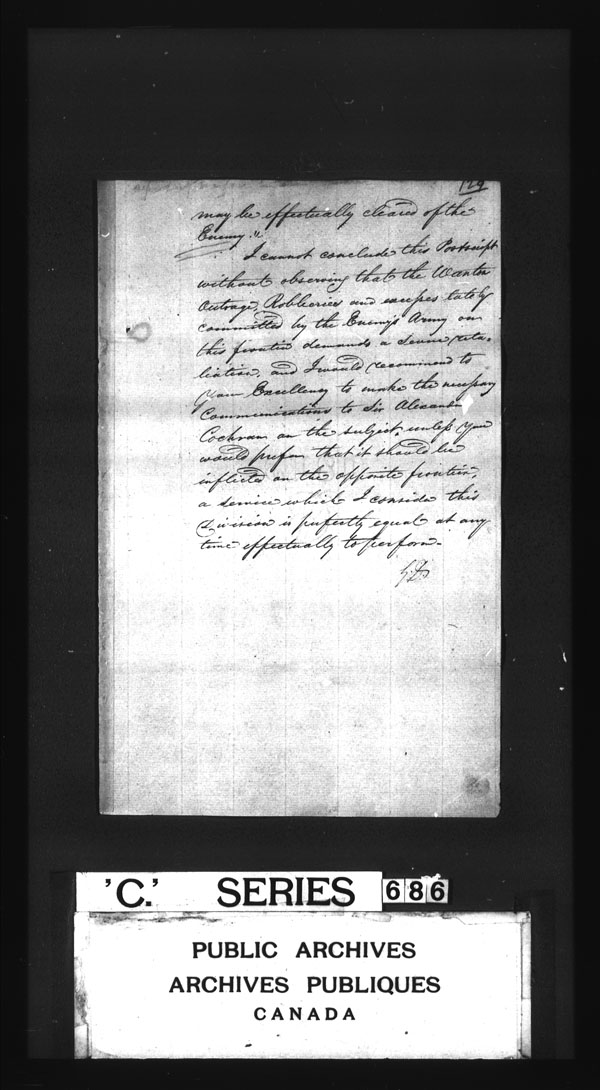 129
may be effectually cleared of the
Enemy."
I cannot conclude this Postscript
without observing that the Wanton
Outrage, Robberies and excesses lately
committed by the Enemy's Army on
this frontier demands a severe reta-
liation, and I would recommend to
Your Excellency to make the necessary
Communications to Sir Alexander
Cochran on the subject, unless you
would prefer that it should be
inflicted on the opposite frontier,
a service which I consider this
Division is perfectly equal at any
time effectually to perform.
G.D.
'C.' SERIES 686
PUBLIC ARCHIVES
ARCHIVES PUBLIQUES
CANADA